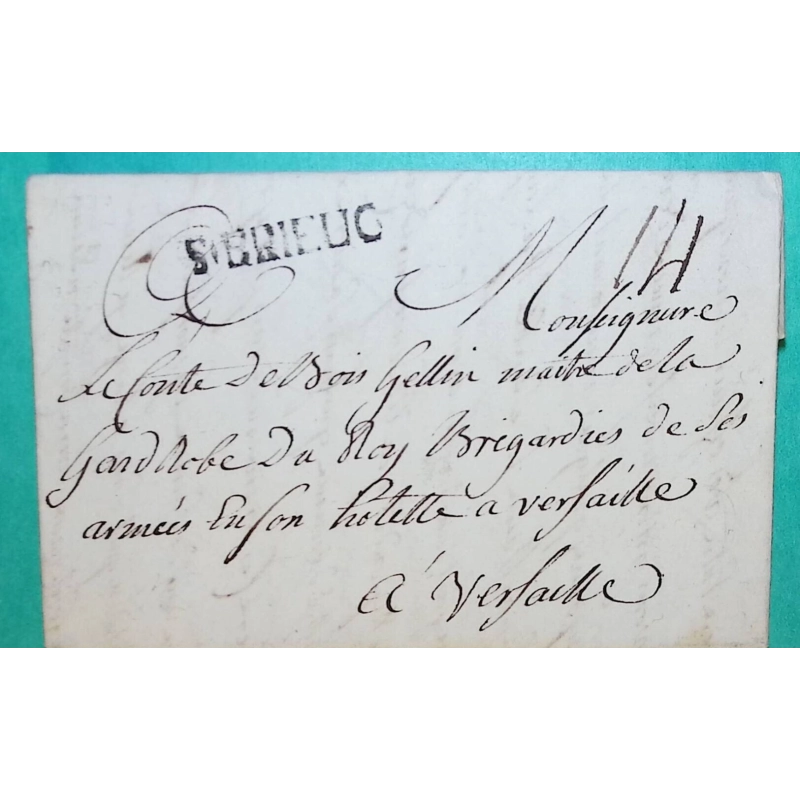 St BRIEUC
14
Monseigneure
Le Conte De Bois Gellin maitre de la
Gard Robe Du Roy Brigardies de Ses
armées En son hotelle a versaille
a versaille